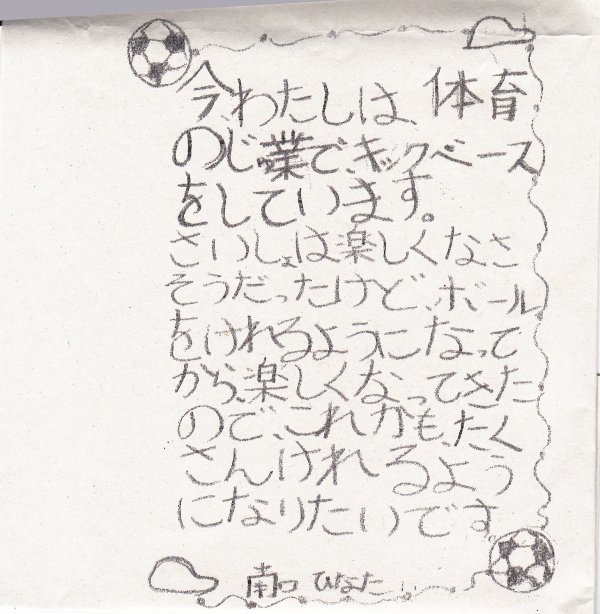 今、わたしは、体育
のじ業で、キックベース
をしています。
さいしょは楽しくなさ
そうだったけど、ボール
をけれるようになって
から、楽しくなってきた
ので、これからも、たく
さんけれるよう
になりたいです
南口 ひなた